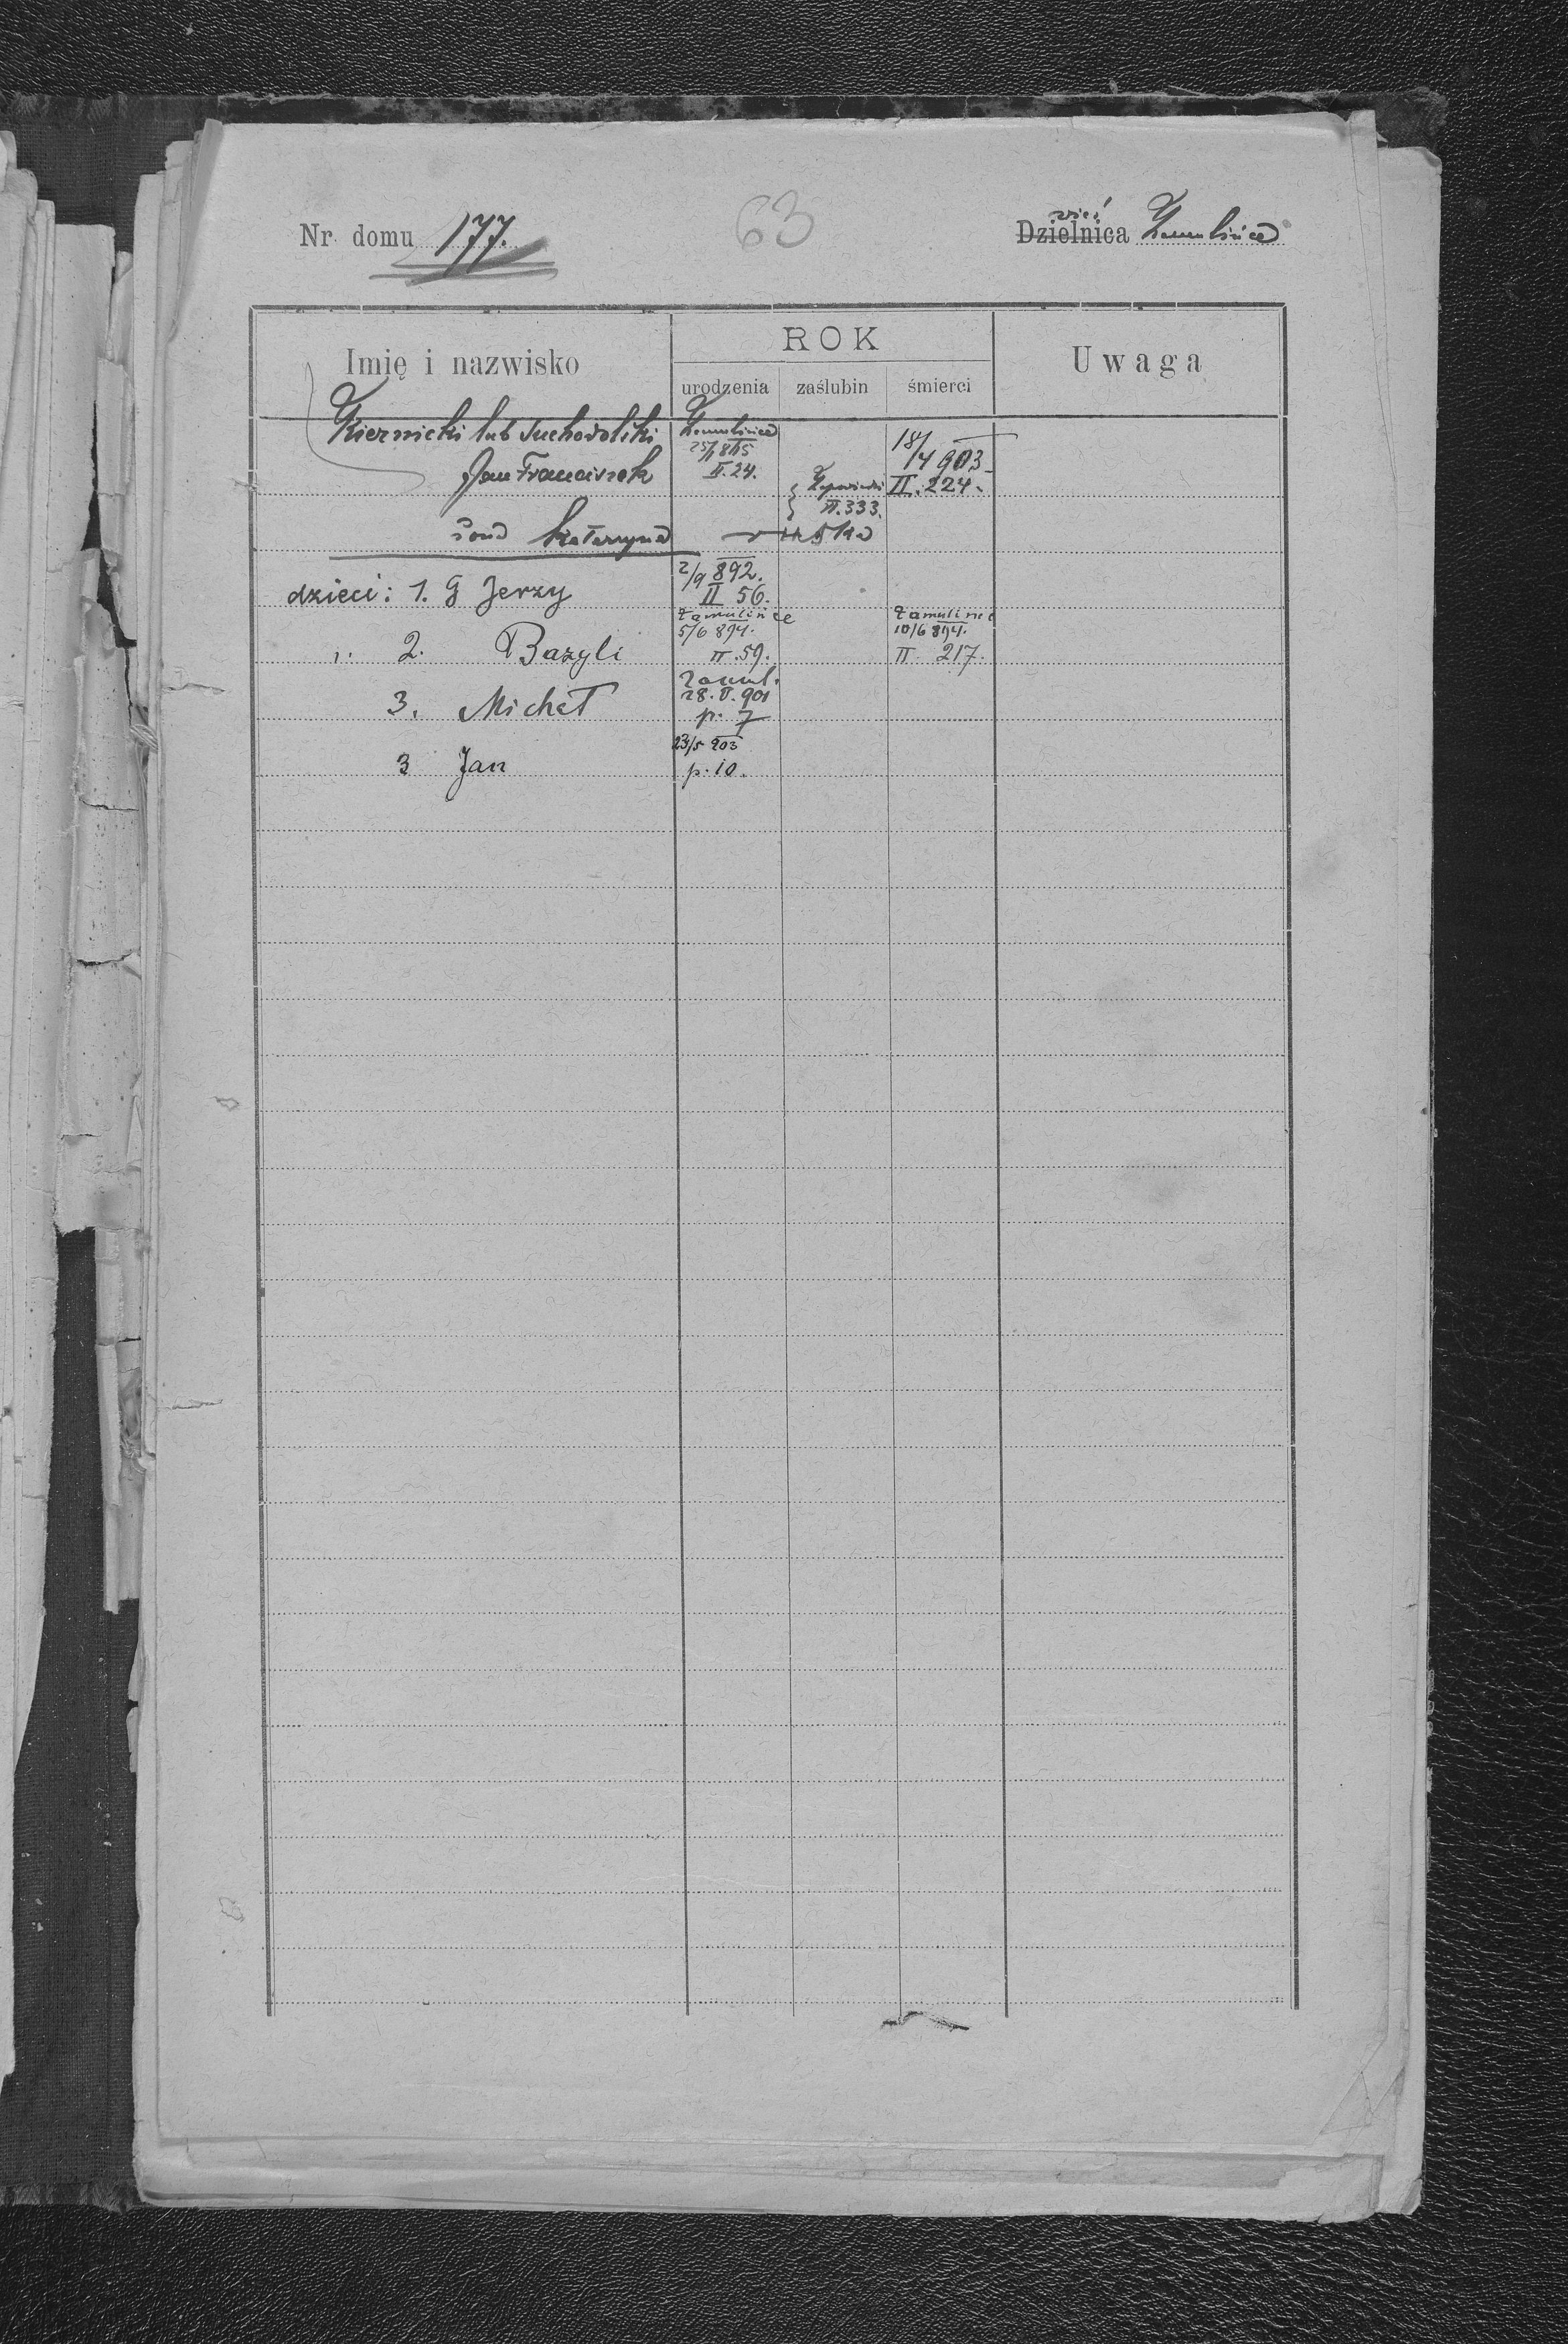 63
wieś
Nr domu 177. Dzielnica Zamulińce
Imię i nazwisko ROK Uwaga
urodzenia zaślubin śmierci
Kiernicki lub Suchodolski Zamulińce 18/4 903
Jan Franciszek II. 24. II. 224.
II. 333.
żona Katarzyna
dzieci: 1. G Jerzy 2/9 892. II 56.
„ 2. Bazyli Zamulińce 5/6 894. II. 59. Zamulińce 10/6 894. II. 217.
3. Michał Zamul. 28. V. 901 p. 7
3 Jan 23/5 903 p. 10.